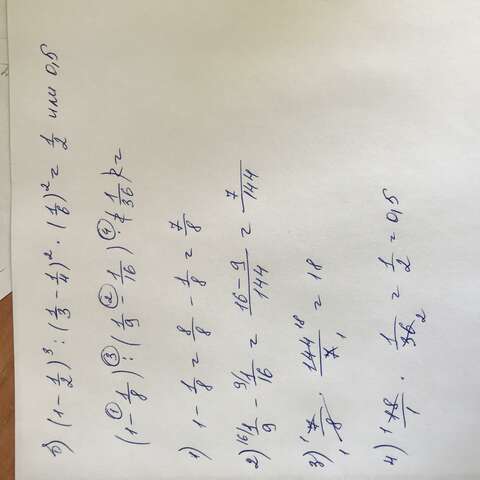 б) (1 - 1/2)³ : (1/3 - 1/4)² · (1/6)² = 1/2 или 0,5
(1 - 1/8) : (1/9 - 1/16) · (1/36) =
1) 1 - 1/8 = 8/8 - 1/8 = 7/8
2) 1/9 - 1/16 = 16-9/144 = 7/144
3) 7/8 · 144/7 = 18
4) 18/1 · 1/36 = 1/2 = 0,5